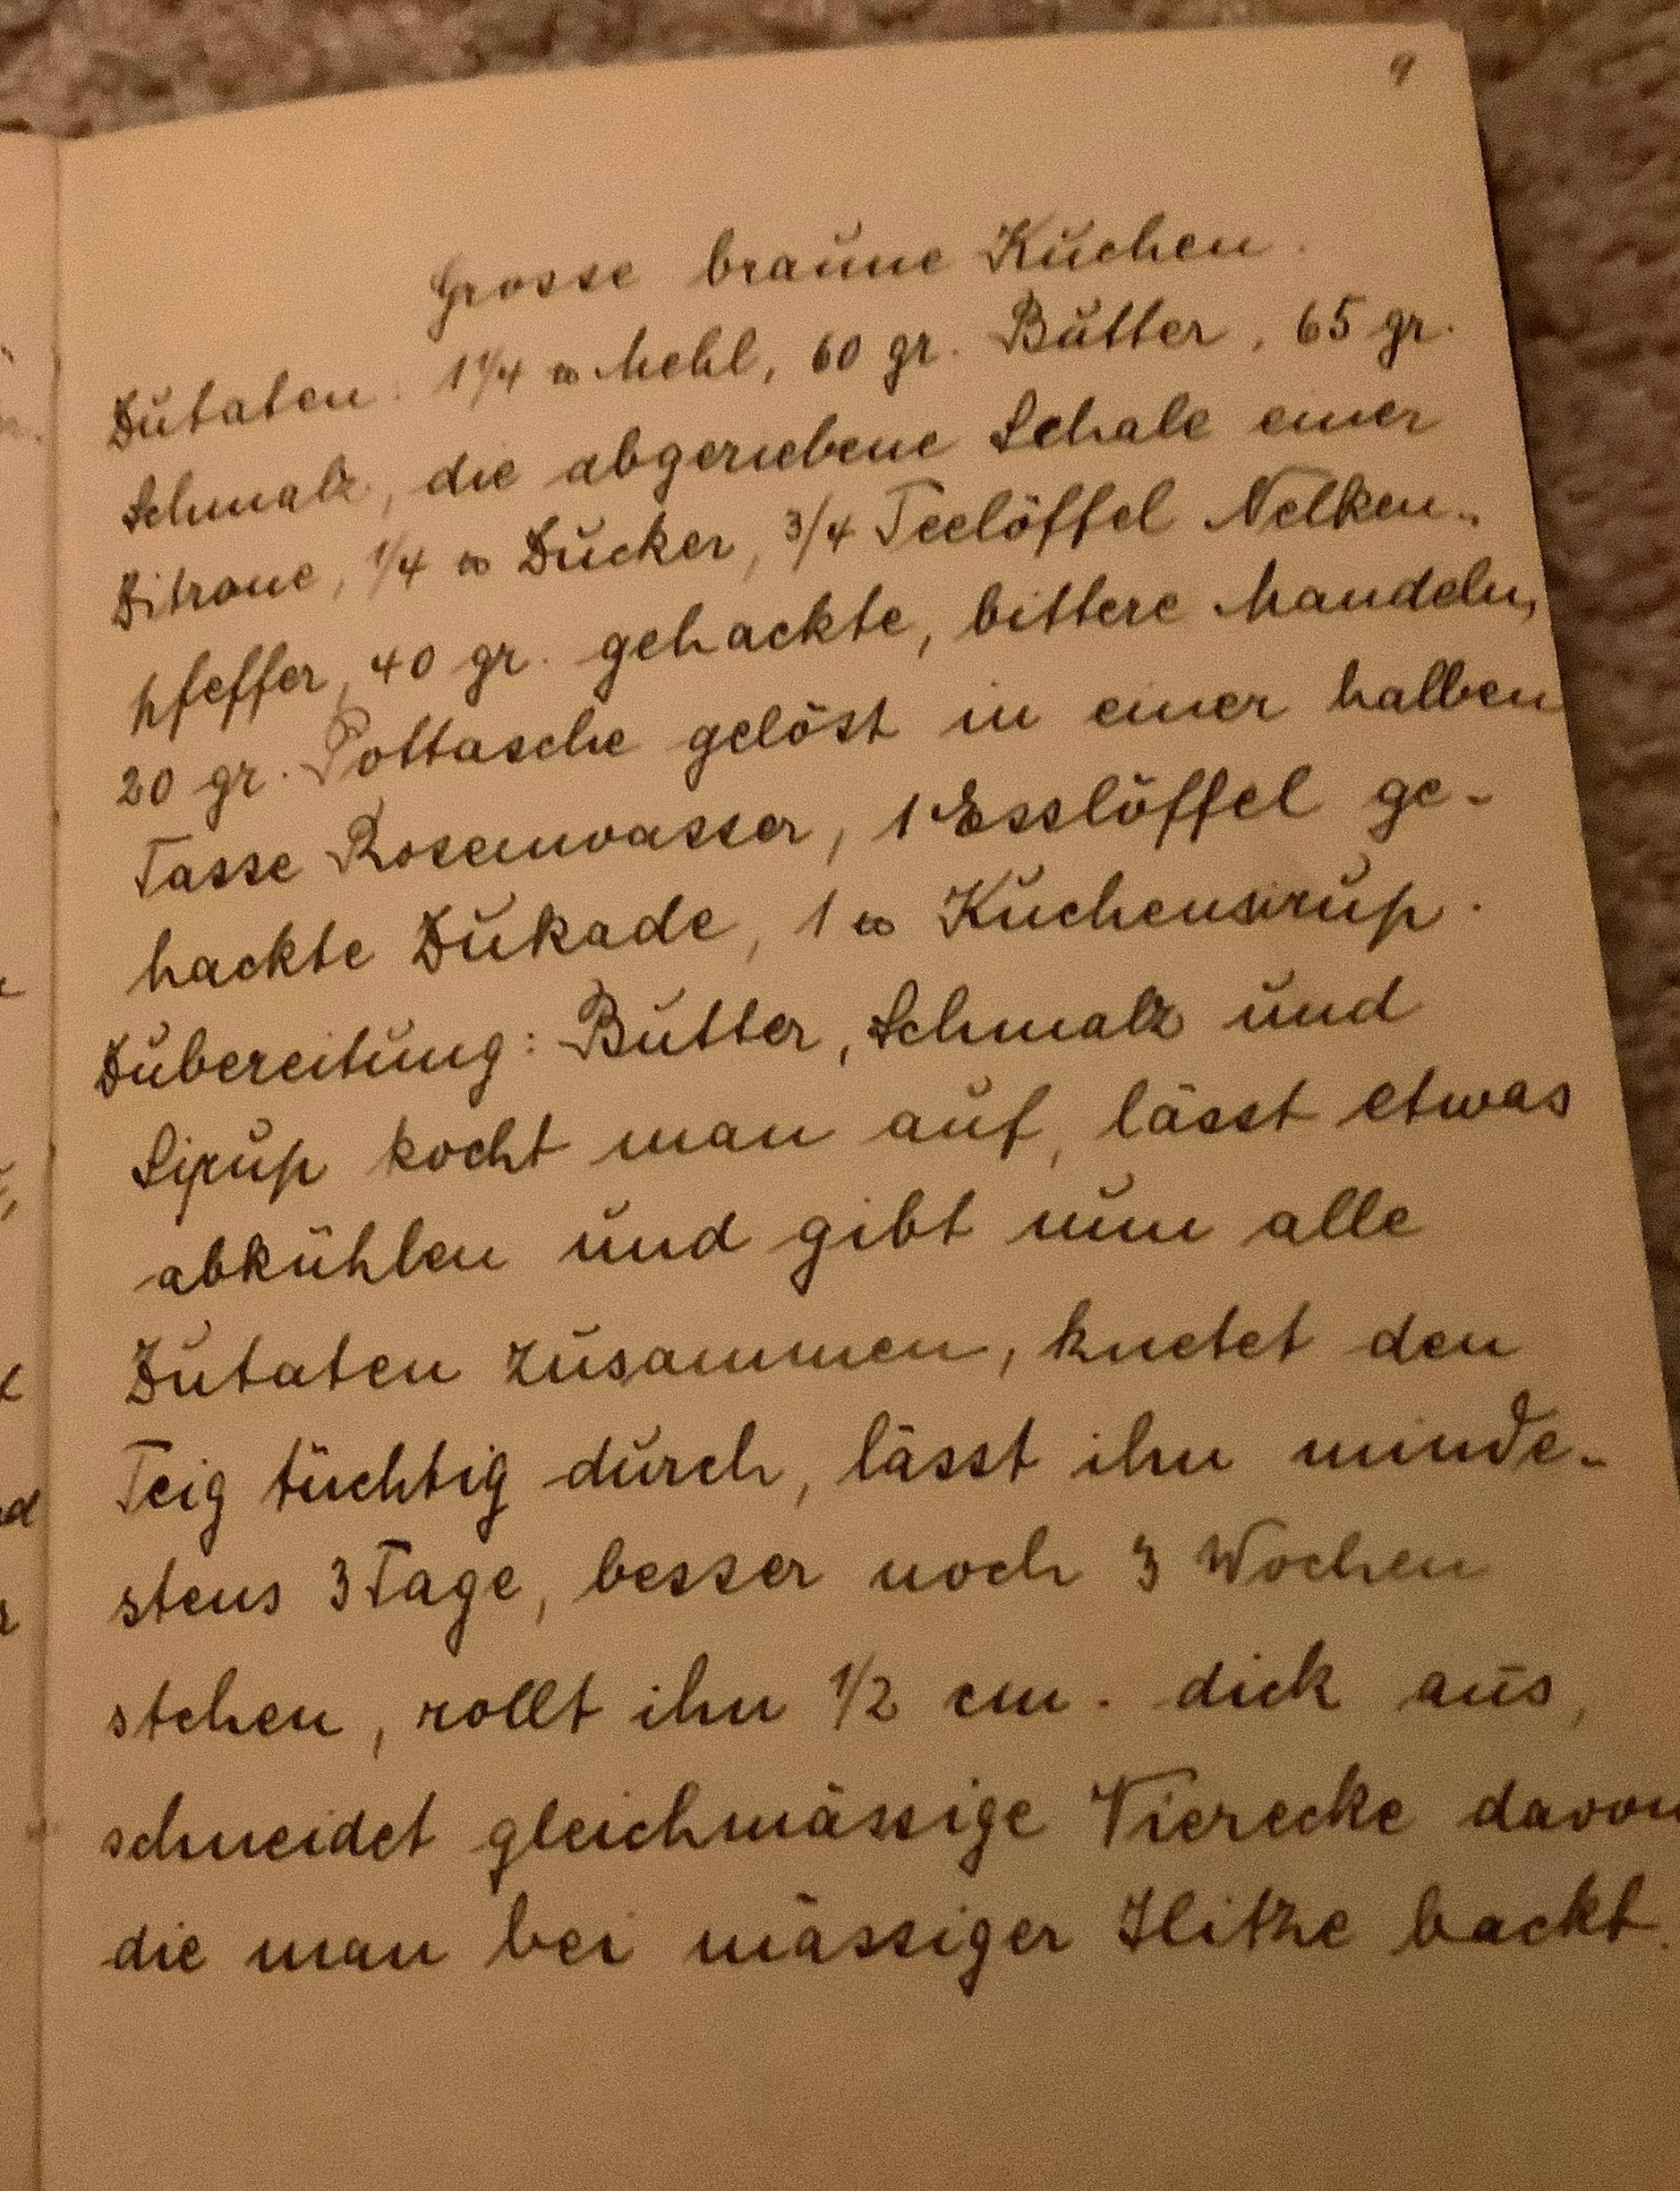 9
Grosse braune Kuchen.
Zutaten: 1 1/4 ℔ Mehl, 60 gr. Butter, 65 gr.
Schmalz, die abgeriebene Schale einer
Zitrone, 1/4 ℔ Zucker, 3/4 Teelöffel Nelken-
pfeffer, 40 gr. gehackte, bittere Mandeln,
20 gr. Pottasche gelöst in einer halben
Tasse Rosenwasser, 1 Esslöffel ge-
hackte Zukade, 1 ℔ Kuchensirup.
Zubereitung: Butter, Schmalz und
Sirup kocht man auf, lässt etwas
abkühlen und gibt nun alle
Zutaten zusammen, knetet den
Teig tüchtig durch, lässt ihn minde-
stens 3 Tage, besser noch 3 Wochen
stehen, rollt ihn 1/2 cm. dick aus,
schneidet gleichmässige Vierecke davon
die man bei mässiger Hitze backt.